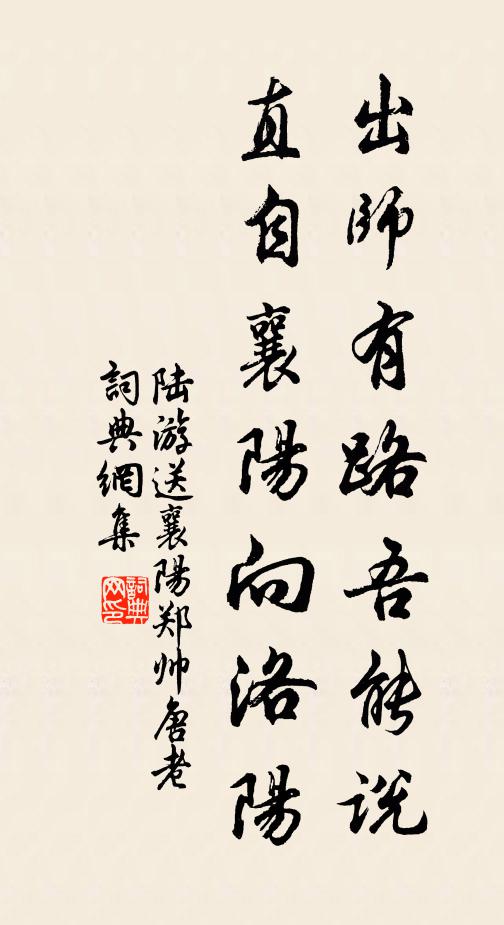 出师有路吾能说
直自襄陽向洛陽
陆游送襄陽郑帅唐老
詞典網集
詞典
网印